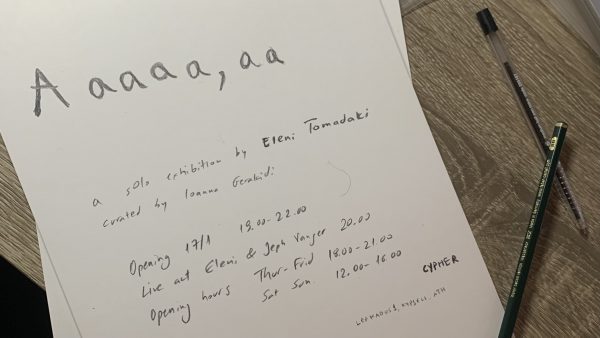 A aaaa, aa
a solo exhibition by Eleni Tomadaki
curated by Ioanna Gerakidi
Opening 17/1 19.00-22.00
Live act Eleni & Jeph Vanger 20.00
Opening hours Thur-Frid 18.00-21.00
Sat Sun. 12.00-16.00
CYPHER